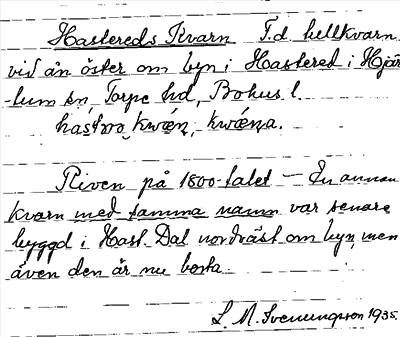 Hastereds Kvarn T.d. hellkvarn
vid ån öster om byn i Hastered i Hjär
-tum sn, Torpe hd, Bohus l.
kwǽn, kwǽna.
Riven på 1800-talet – En annan
kvarn med samma namn var senare
byggd i Hast. Dal nordväst om byn, men
även den är nu borta.
L. M. Svenungsson 1935.